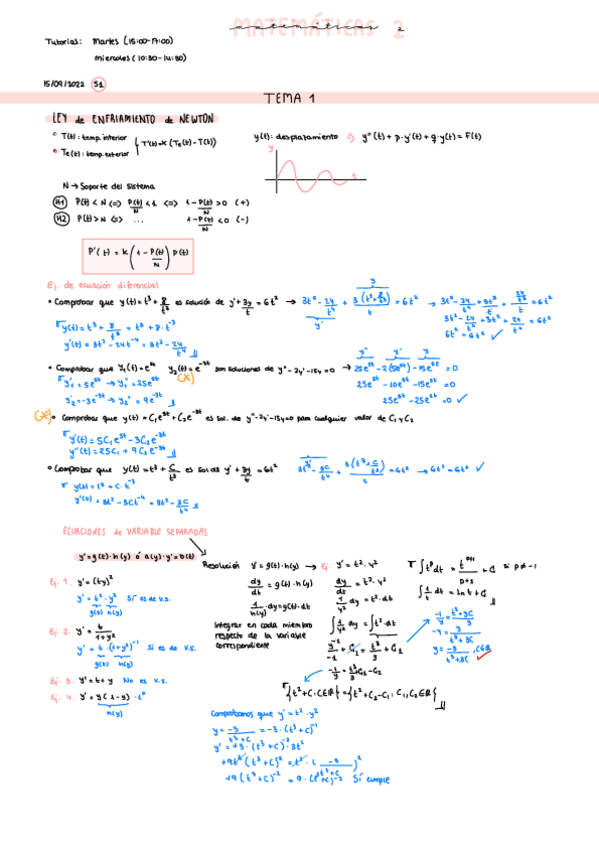 MATEMÁTICAS 2
Tutorías: Martes (15:00-17:00)
miércoles (10:30-14:30)
15/09/2022 S1
TEMA 1
LEY de ENFRIAMIENTO de NEWTON
• T(t): temp. interior
• Te(t): temp. exterior
{ T'(t)=k (Te(t)-T(t))
y(t): desplazamiento ⇒ y''(t) + p·y'(t) + q·y(t) = F(t)
y
t
N → Soporte del sistema
H1 P(t) < N <=> P(t)/N < 1 <=> 1 - P(t)/N > 0 (+)
H2 P(t) > N <=> ... 1 - P(t)/N < 0 (-)
P'(t) = k (1 - P(t)/N) P(t)
Ej. de ecuación diferencial
• Comprobar que y(t) = t³ + 8/t³ es solución de y' + 3y/t = 6t² → 3t² - 24/t⁴ + 3(t³ + 8/t³)/t = 6t² → 3t² - 24/t⁴ + 3t³/t + 24/t⁴ = 6t²
3t² - 24/t⁴ + 3t² + 24/t⁴ = 6t²
6t² = 6t² ✓
y(t) = t³ + 8/t³ = t³ + 8·t⁻³
y'(t) = 3t² - 24t⁻⁴ = 3t² - 24/t⁴
• Comprobar que y₁(t) = e⁵ᵗ y₂(t) = e⁻³ᵗ son soluciones de y'' - 2y' - 15y = 0 → 25e⁵ᵗ - 2(5e⁵ᵗ) - 15e⁵ᵗ = 0
y'₁ = 5e⁵ᵗ → y''₁ = 25e⁵ᵗ (*) 25e⁵ᵗ - 10e⁵ᵗ - 15e⁵ᵗ = 0
y'₂ = -3e⁻³ᵗ → y''₂ = 9e⁻³ᵗ 25e⁵ᵗ - 25e⁵ᵗ = 0 ✓
(*) • Comprobar que y(t) = C₁e⁵ᵗ + C₂e⁻³ᵗ es sol. de y'' - 2y' - 15y = 0 para cualquier valor de C₁ y C₂
y'(t) = 5C₁e⁵ᵗ - 3C₂e⁻³ᵗ
y''(t) = 25C₁ + 9C₂e⁻³ᵗ
• Comprobar que y(t) = t³ + C/t³ es sol de y' + 3y/t = 6t² 3t² - 3C/t⁴ + 3(t³ + C/t³)/t = 6t² → 6t² = 6t² ✓
y(t) = t³ + C·t⁻³
y'(t) = 3t² - 3Ct⁻⁴ = 3t² - 3C/t⁴
ECUACIONES de VARIABLE SEPARADAS
y' = g(t)·h(y) ó a(y)·y' = b(t)
Ej. 1. y' = (ty)²
y' = t²·y² Sí es de v.s.
g(t) h(y)
Ej. 2. y' = t/(1+y²)
y' = t·(1+y²)⁻¹ Si es de v.s.
g(t) h(y)
Ej. 3. y' = t+y No es v.s.
Ej. 4. y' = y(1-y)·t⁰
h(y)
Resolución y' = g(t)·h(y) → Ej. y' = t²·y²
dy/dt = g(t)·h(y) dy/dt = t²·y²
1/h(y) dy = g(t)·dt 1/y² dy = t²·dt
Integrar en cada miembro
respecto de la variable
correspondiente
∫ 1/y² dy = ∫ t²·dt
y⁻¹/-1 + C₁ = t³/3 + C₂
-1/y = t³/3 + C₂ - C₁
{t³ + C: C∈ℝ} = {t³ + C₂ - C₁: C₁, C₂∈ℝ}
∫ tᵖ dt = tᵖ⁺¹/p+1 + C si p ≠ -1
∫ 1/t dt = ln t + C
-1/y = t³+3C/3
-y = 3/t³+3C
y = -3/t³+3C, C∈ℝ
Comprobamos que y' = t²·y²
y = -3/t³+C = -3·(t³+C)⁻¹
y' = +3·(t³+C)⁻²·3t²
+9t²(t³+C)⁻² = t²·(-3/t³+C)²
+9(t³+C)⁻² = 9·(t³+C)⁻² Sí cumple